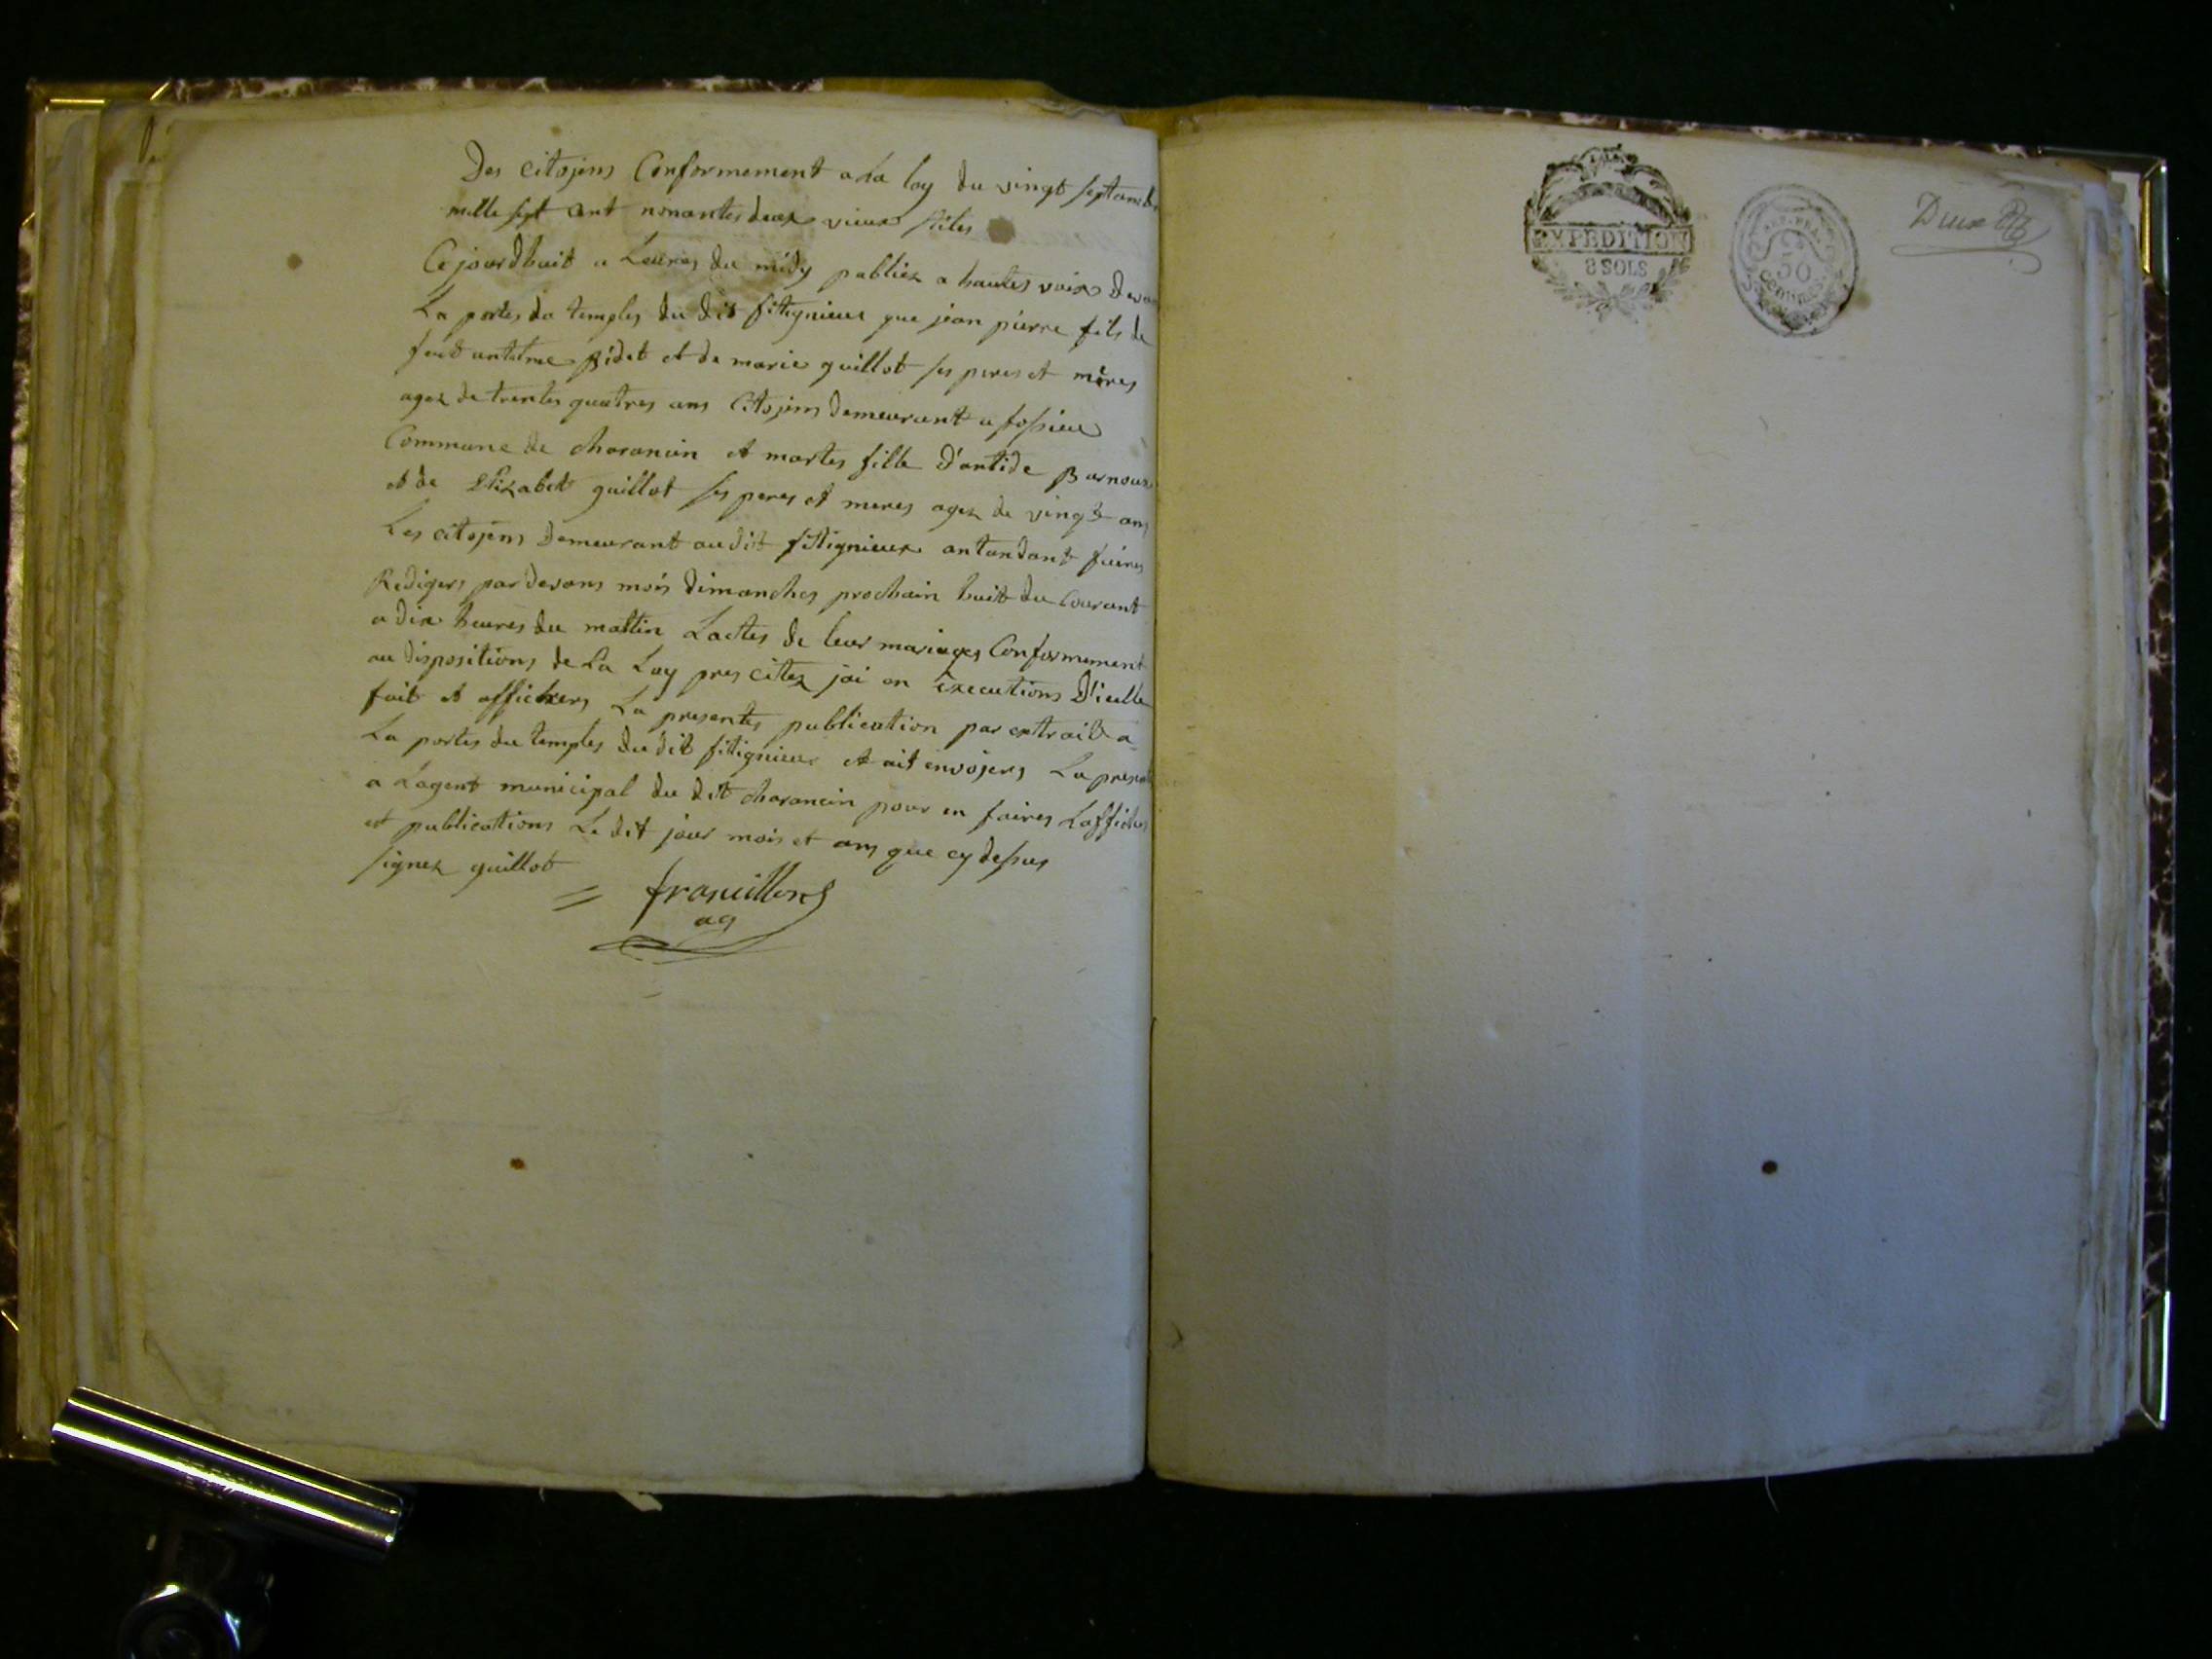 Des citojens Conformement a La loy du vingt septambr
mille sept cent nonantes deux vieux stiles
Cejourdhuit a Leures du midy publiez a hautes voix devan
La portes du temples du dit sitignieux que jean pierre fils de
feut antelme Bidat et de marie guillot ses peres et meres
agez de trentes quatres ans Citojens demeurant a fossieu
Commune de charancin et martes fille d'antide Barnoux
et de Elizabet guillot ses peres et meres agez de vingt ans
Les citojens demeurant au dit sitignieux antandant faires
Redigers par devans mois dimanches prochain huit du Courant
a dix heures du mattin Lactes de leur mariages Conformement
au dispositions de La Loy pres citez jai en executions D'icelle
fait et affichers La presentes publication par extrait a
La portes du temples du dit sitignieux et ait envojers La presen
a Lagent municipal du dit charancin pour en faires Laffiches
et publications Le dit jour mois et ans que cy dessus
signez guillot
= 
ag
EXPEDITION
8 SOLS
50
Centimes
Deux